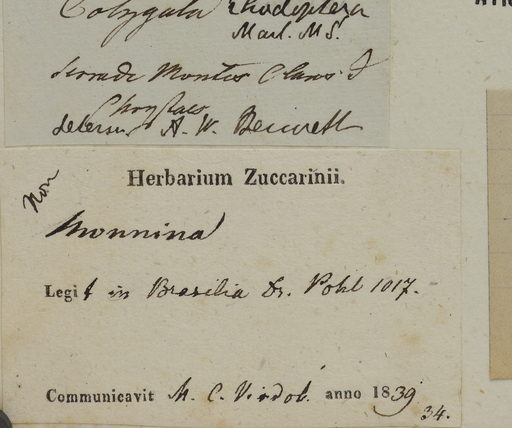 Polygala rhodoptera
Mart. MS.
Serra de Montes Claros
Chrystaes
determ. A. W. Bennett
Herbarium Zuccarinii.
Non
Monnina
Legit in Brasilia Dr. Pohl 1017.
Communicavit M. C. Vindob. anno 1839
34.